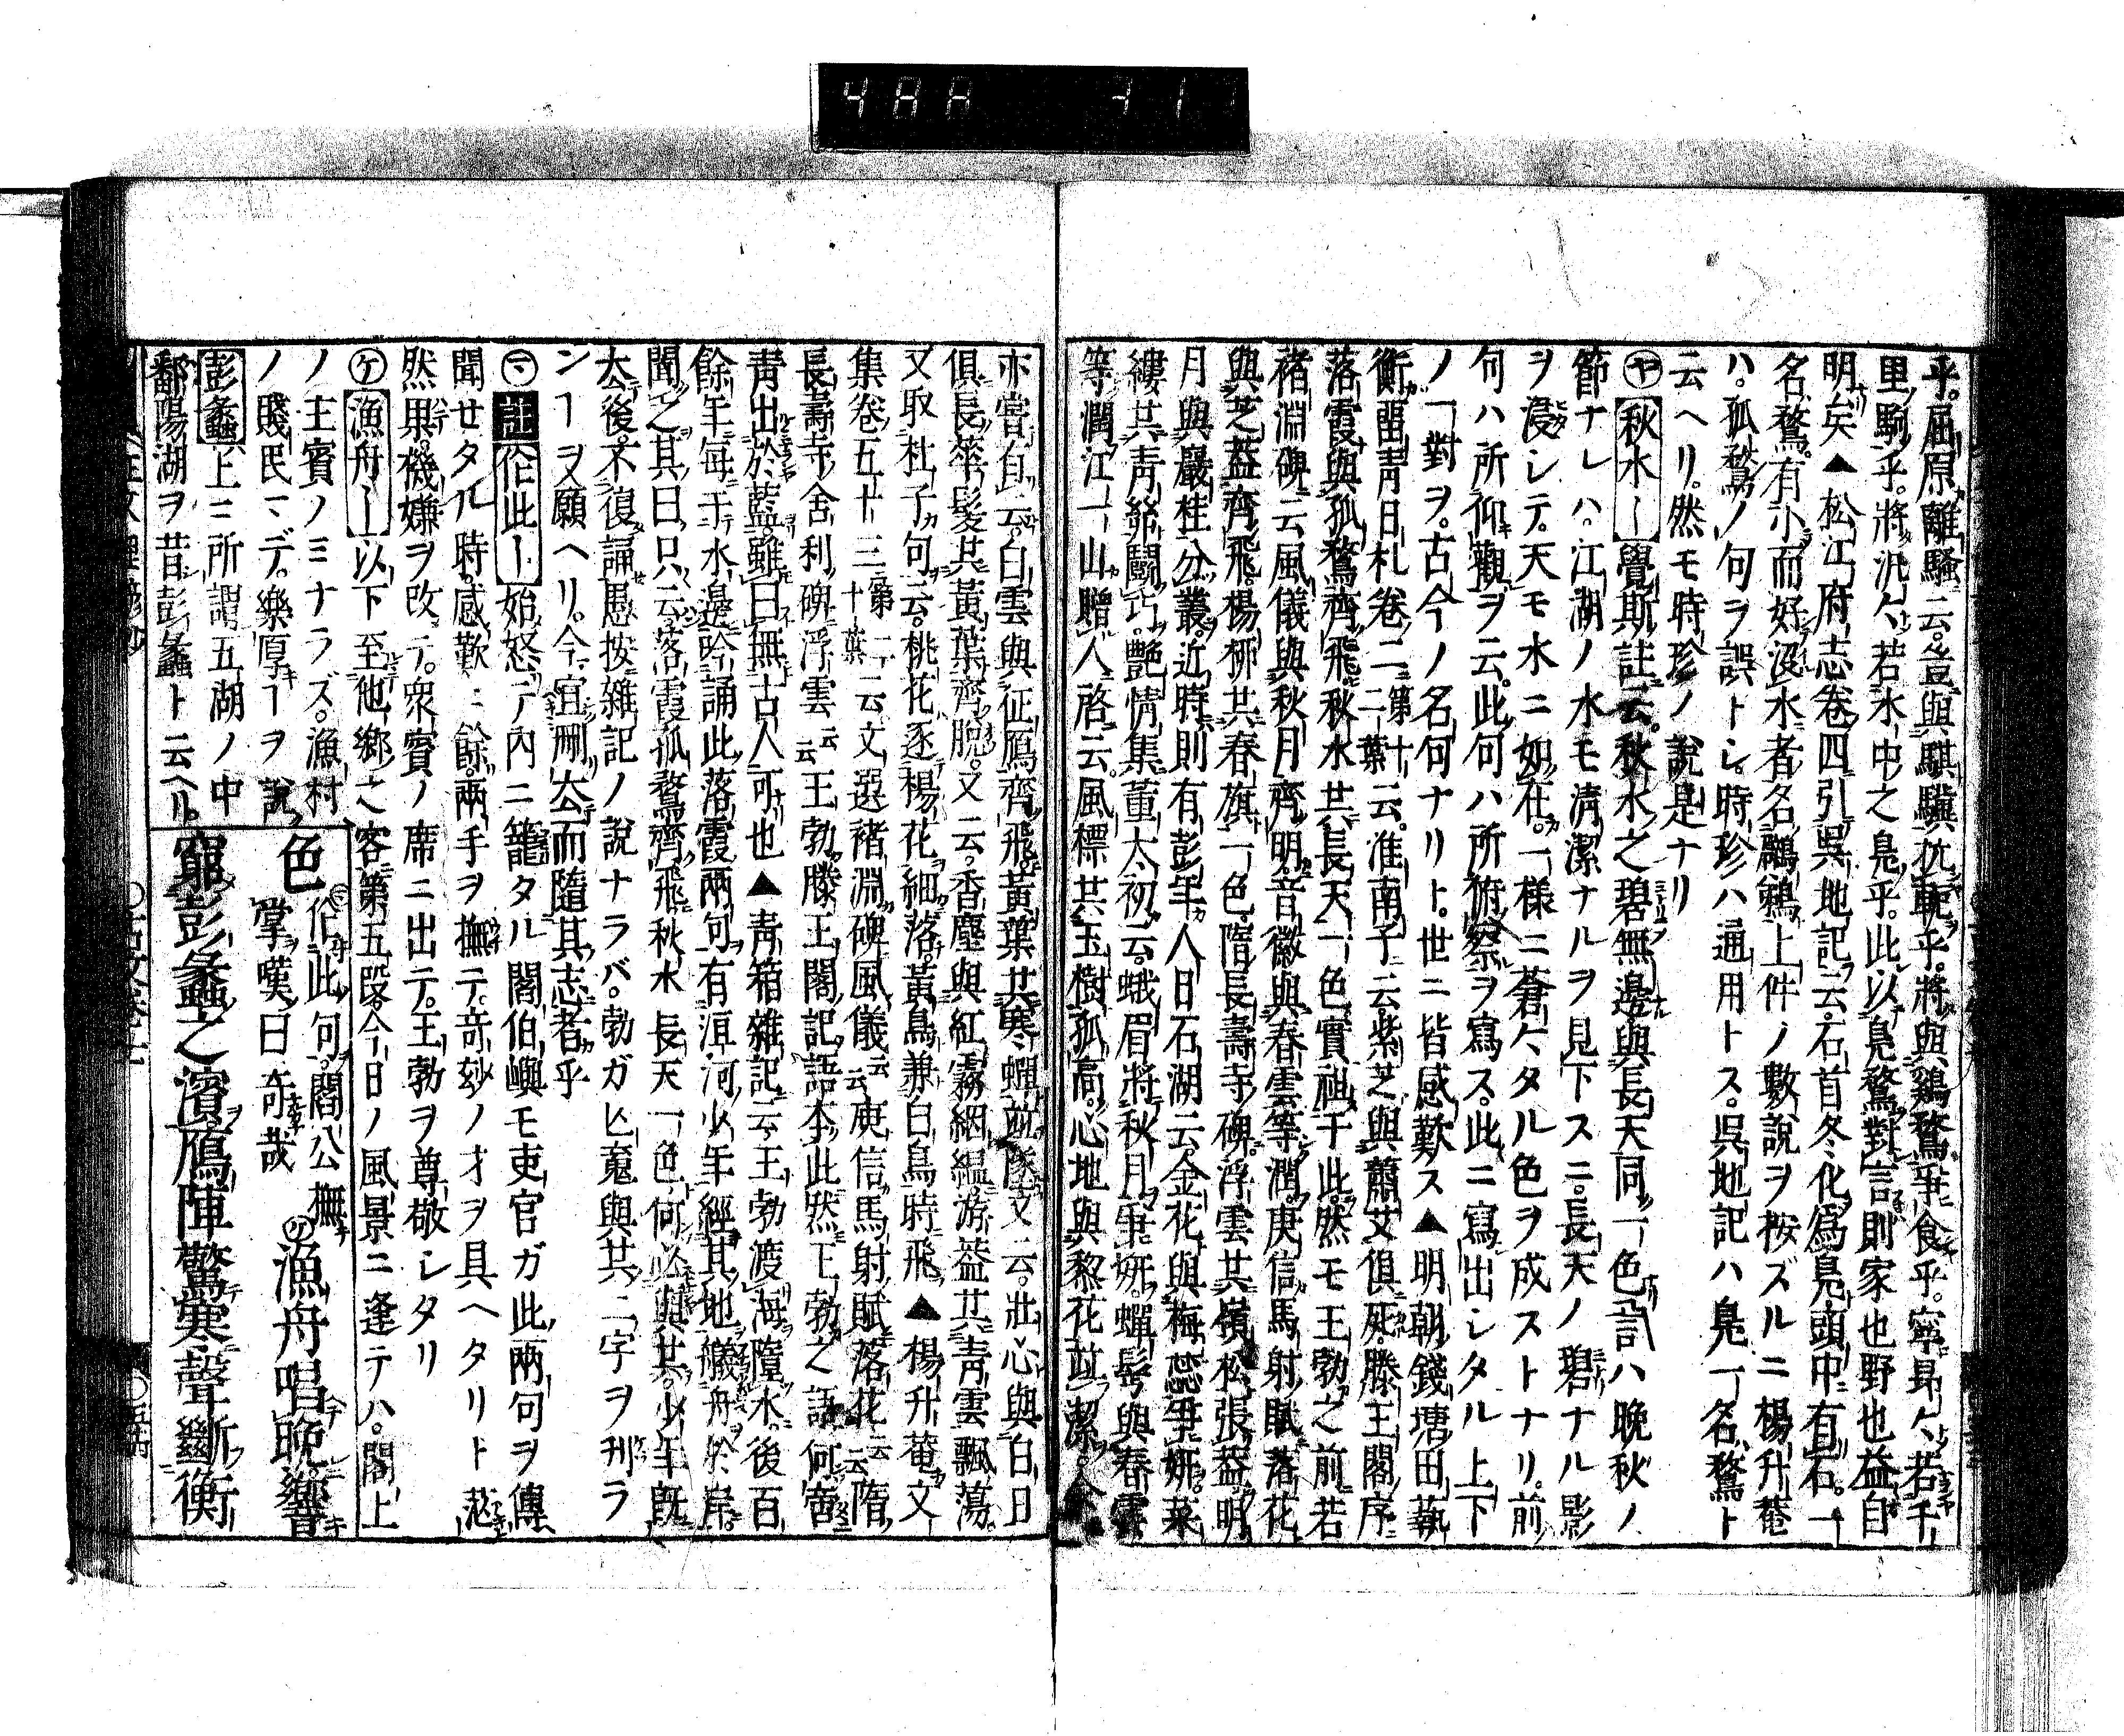 乎。屈原離騷云。豈與騏驥抗軛乎。將與鷄鶩爭食乎。寧昻〱若千
里駒乎。將汎〱若水中之鳬乎。此以鳬鶩對言則家也野也益自
明矣▲松江府志卷四引呉地記云。石首冬化爲鳬頭中有石。一
名鶩。有小而好沒水者名鸊鷉上件ノ數說ヲ按ズルニ楊升菴
ハ。孤鶩ノ句ヲ誤トシ。時珍ハ通用トス。呉地記ハ鳬一名鶩ト
云ヘリ。然モ時珍ノ說是ナリ
㋳秋水ー覺斯註云。秋水之碧無邊與長天同一色言ハ晩秋ノ
節ナレハ。江湖ノ水モ淸潔ナルヲ見下スニ。長天ノ碧ナル影
ヲ浸シテ。天モ水ニ如在。一樣ニ蒼〱タル色ヲ成ストナリ。前
句ハ所仰觀ヲ云。此句ハ所俯察ヲ寫ス。此ニ寫出シタル上下
ノ一對ヲ。古今ノ名句ナリト。世ニ皆感歎ス▲明朝錢塘田藝
衡留靑日札卷二第十二葉云。淮南子云。紫芝與蕭艾俱死。滕王閣序
落霞與孤鶩齊飛秋水共長天一色實祖于此。然モ王勃之前若
褚淵碑云風儀與秋月齊明。音徽與春雲等潤。庾信馬射賦落花
與芝葢齊飛。楊栁共春旗一色。隋長壽寺碑。浮雲共嶺松張葢。明
月與巖桂分叢。近時則有彭年人日石湖云。金花與梅蕊爭妍。菜
縷共靑絲鬪巧。艷情集董太初云。蛾眉將秋月爭妍。蟬髩與春雲
等潤江一山贈人啓云。風標共玉樹孤高。心地與黎花並潔。
亦嘗自云。白雲與征鴈齊飛。黃葉共寒蟬竝墜又云。壯心與白日
俱長。華髮共黃葉齊脫。又云。香塵與紅霧絪縕。游葢共靑雲飄蕩。
又取杜子句云。桃花逐楊花細落。黃鳥兼白鳥時飛▲楊升菴文
集卷五十三第二十葉云文選褚淵碑風儀云云庾信馬射賦落花云云隋
長壽寺舍利碑浮雲云云王勃滕王閣記語本此然王勃之語何啻
靑出於藍雖曰無古人可也▲靑箱雜記云王勃渡海墮水。後百
餘年每于水邊吟誦此落霞兩句有洹河少年經其地艤舟於岸。
聞之其曰只云落霞孤鶩齊飛秋水長天一色何必與共。少年旣
太後不復誦愚按雜記ノ說ナラバ。勃ガ亡䰟與共二字ヲ刋ラ
ンヿヲ願ヘリ。今宜刪去而隨其志者乎
㋮註作此ー始怒テ內ニ籠タル閻伯嶼モ吏官ガ此兩句ヲ傳
聞セタル時感歎ニ餘。兩手ヲ撫テ。奇玅ノ才ヲ具ヘタリト莣
然果。機嫌ヲ改テ。衆賓ノ席ニ出テ。王勃ヲ尊敬シタリ
㋘漁舟ー以下至他鄕之客第五段今日ノ風景ニ逢テハ。閣上
ノ主賓ノミナラズ。漁村
ノ賤民マデ。樂厚キヿヲ說
彭蠡上ニ所謂五湖ノ中
鄱陽湖ヲ昔彭蠡ト云ヘリ。
色㋮作此句。閻公撫
掌嘆曰奇哉㋘漁舟唱晚響
窮彭蠡之濱鴈陣驚寒聲斷衡